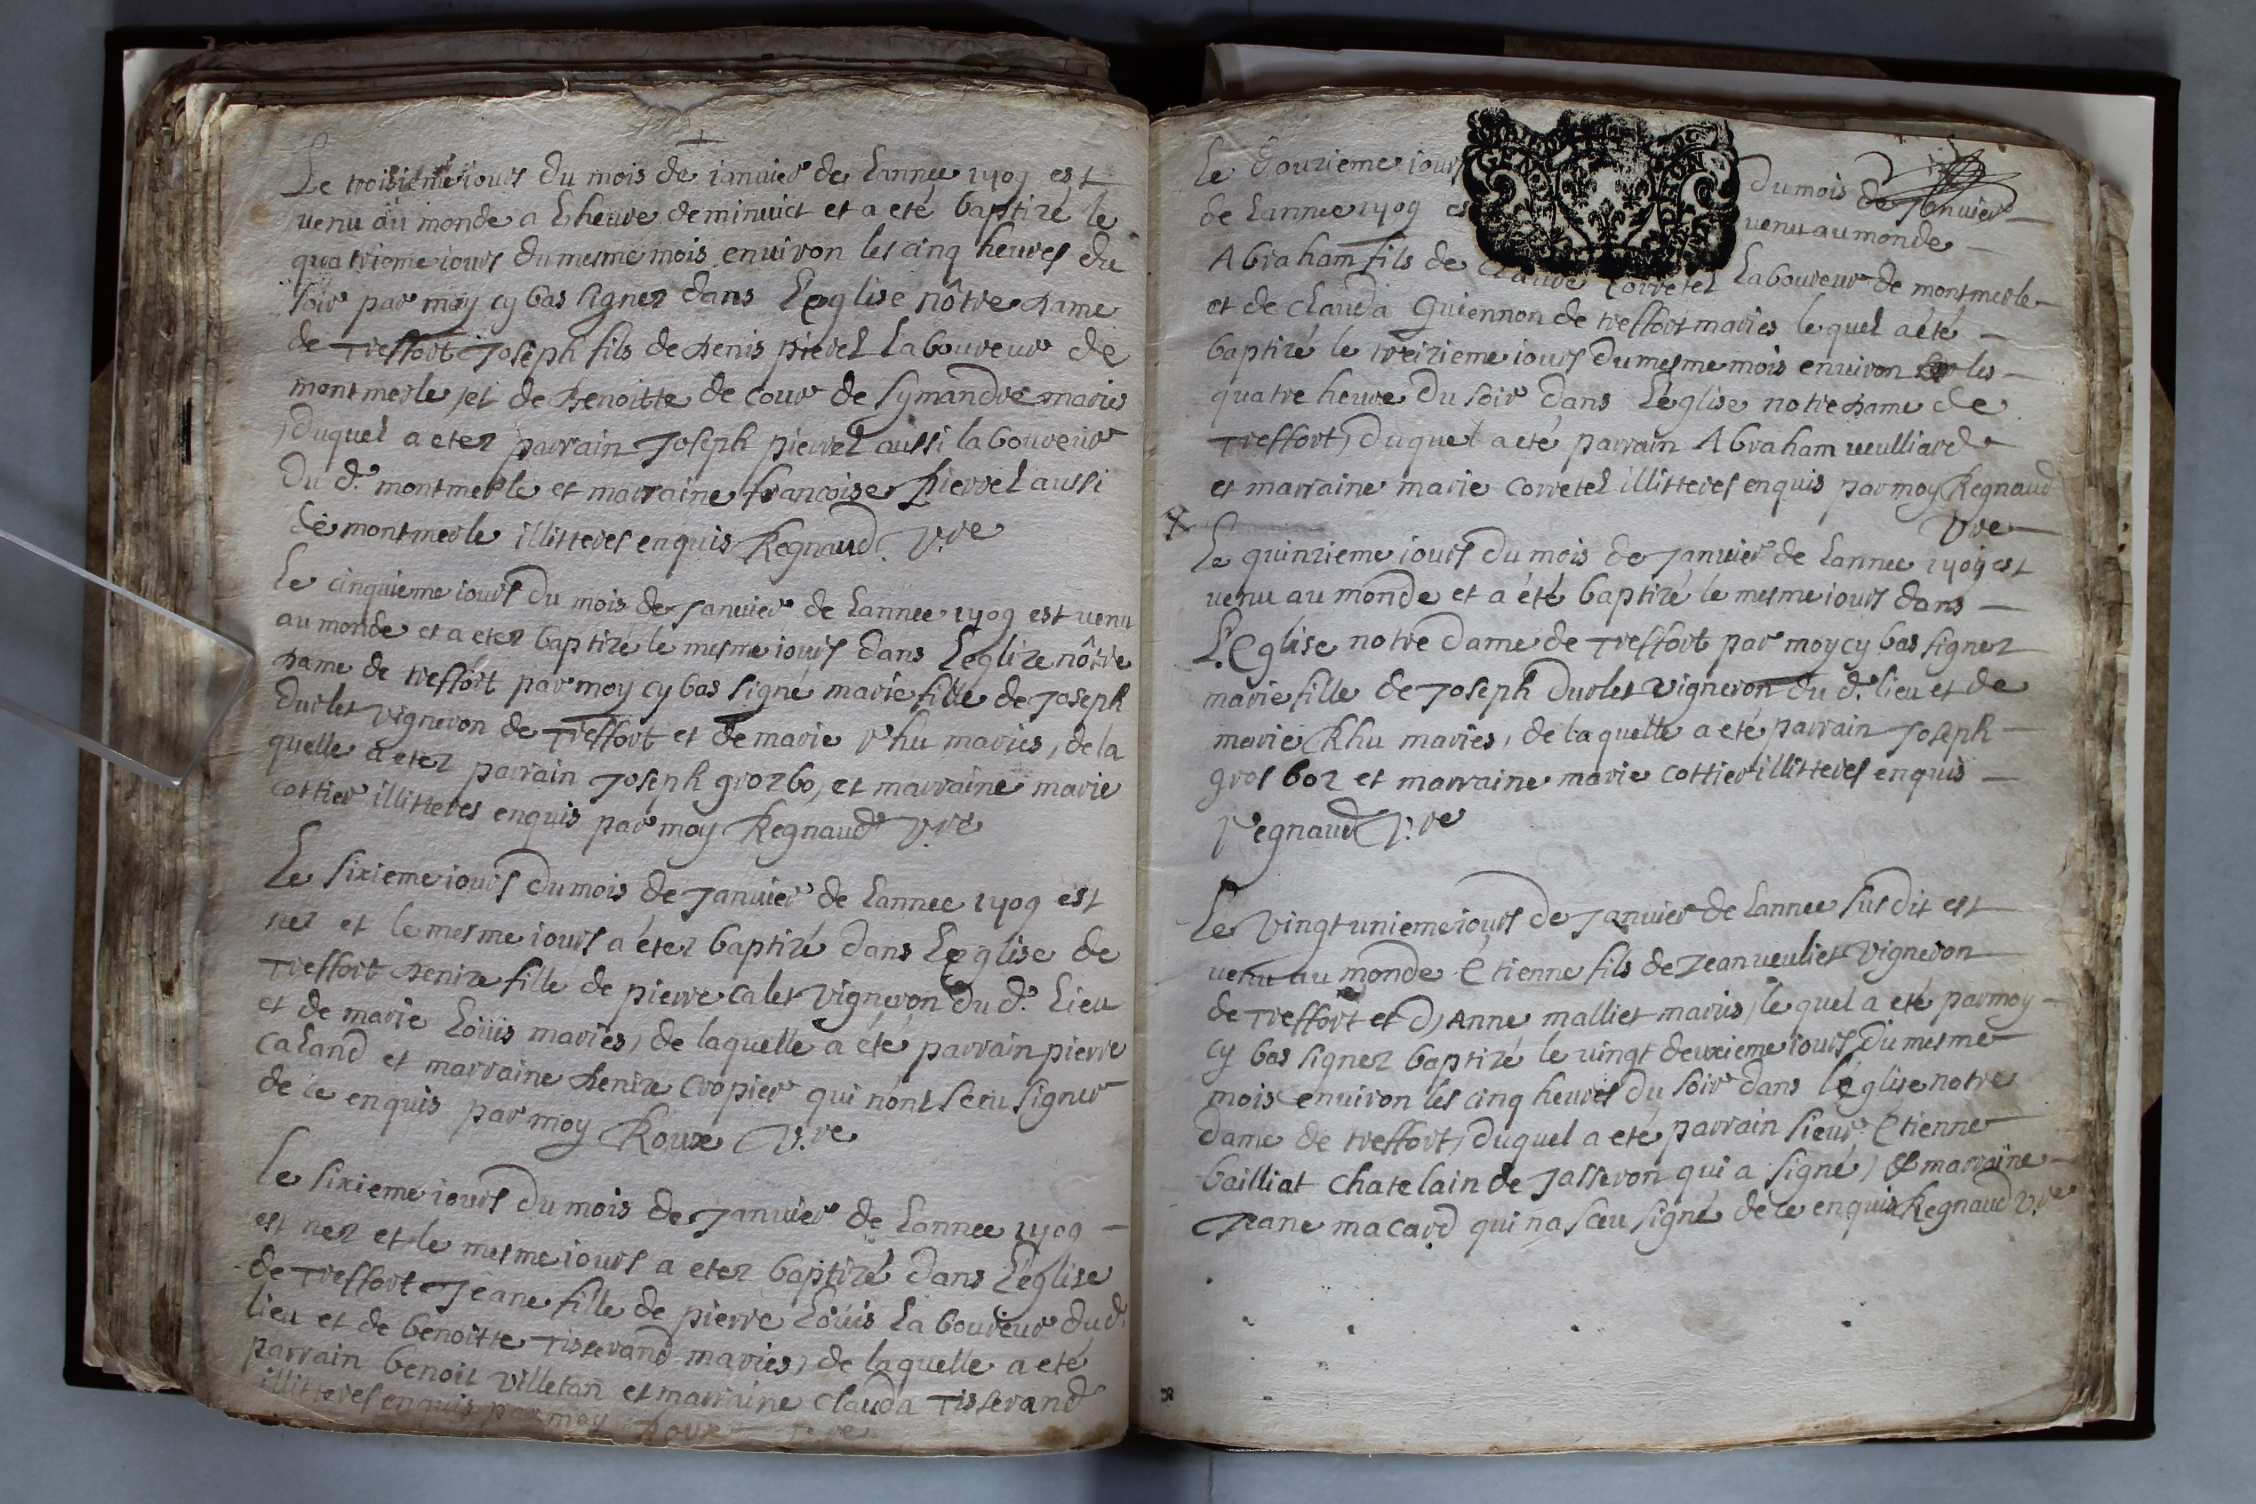 Le troisieme iours du mois de ianvier de Lannee 1709 est
venu au monde a Lheure de minuict et a eté baptizé le
quatrieme iours du mesme mois environ les cinq heures du
soir par moy cy bas signez dans Leglise nôtre dame
de Treffort Joseph fils de denis pierrel Laboureur de
montmerle et de Benoitte de cour de symandre maries
duquel a etez parrain Joseph pierrel aussi laboureur
du d. montmerle et marraine francoise pierrel aussi
de montmerle illitteres enquis Regnaud V.re
Le cinquieme iours du mois de Janvier de Lannee 1709 est venu
au monde et a etez baptizé le mesme iours dans Leglize nôtre
dame de treffort par moy cy bas signé marie fille de Joseph
durlet vigneron de Treffort et de marie rhu maries, de la
quelle a etez parrain Joseph grozbo, et marraine marie
cottier illitteres enquis par moy Regnaud V.re
Le sixieme iours du mois de Janvier de Lannee 1709 est
nez et le mesme iours a étez baptizé dans Leglise de
Treffort denize fille de pierre calet vigneron du d. Lieu
et de marie Loüis maries, de laquelle a été parrain pierre
caland et marraine denize cropier qui nont sceu signer
de ce enquis par moy Roux V.re
Le sixieme iours du mois de Janvier de Lannee 1709
est nez et le mesme iours a etez baptizé dans Leglise
de Treffort Jeane fille de pierre Loüis Laboureur du d.
lieu et de benoitte Tisserand maries, de laquelle a eté
parrain benoit villetan et marraine clauda Tisserand
illitteres enquis par moy Roux V.re
Le douzieme iours du mois de Janvier
de Lannee 1709 est venu au monde
Abraham fils de claude Corretel Laboureur de montmerle
et de clauda Guiennon de treffort maries le quel a été
baptizé le treizieme iours du mesme mois environ les
quatre heure du soir dans Léglise notre dame de
Treffort, duquel a eté parrain Abraham veulliard
et marraine marie corretel illitteres enquis par moy Regnaud
V.re
Le quinzieme iours du mois de Janvier de Lannee 1709 est
venu au monde et a été baptizé le mesme iours dans
L'Eglise notre dame de Treffort par moy cy bas signez
marie fille de Joseph durlet vigneron du d. lieu et de
marie Rhu maries, de laquelle a eté parrain Joseph
gros boz et marraine marie cottier illitteres enquis
regnaud V.re
Le vingt unieme iours de Janvier de Lannee susdit est
venu au monde Etienne fils de Jean veuliet vigneron
de Treffort et d, Anne malliet maries, le quel a eté par moy
cy bas signez baptizé le vingt deuxieme iours du mesme
mois environ les cinq heures du soir dans léglise notre
dame de treffort, duquel a eté parrain sieur Etienne
bailliat chatelain de Jasseron qui a signé, et marraine
Jeane macard qui na sceu signé de ce enquis Regnaud V.re